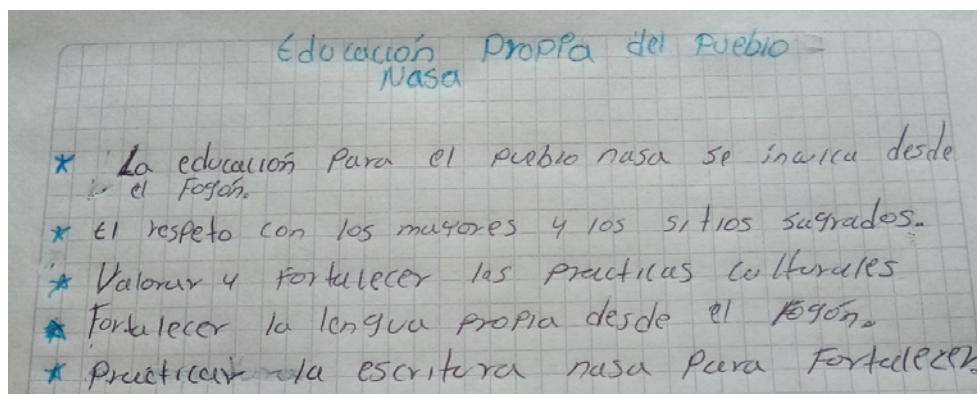 Educación Propia del Pueblo
Nasa
La educación Para el pueblo nasa se inculca desde
el Fogón.
El respeto con los mayores y los sitios sagrados.
Valorar y Fortalecer las practicas culturales
Fortalecer la lengua propia desde el Fogón.
Practicar la escritura nasa Para Fortalecer.